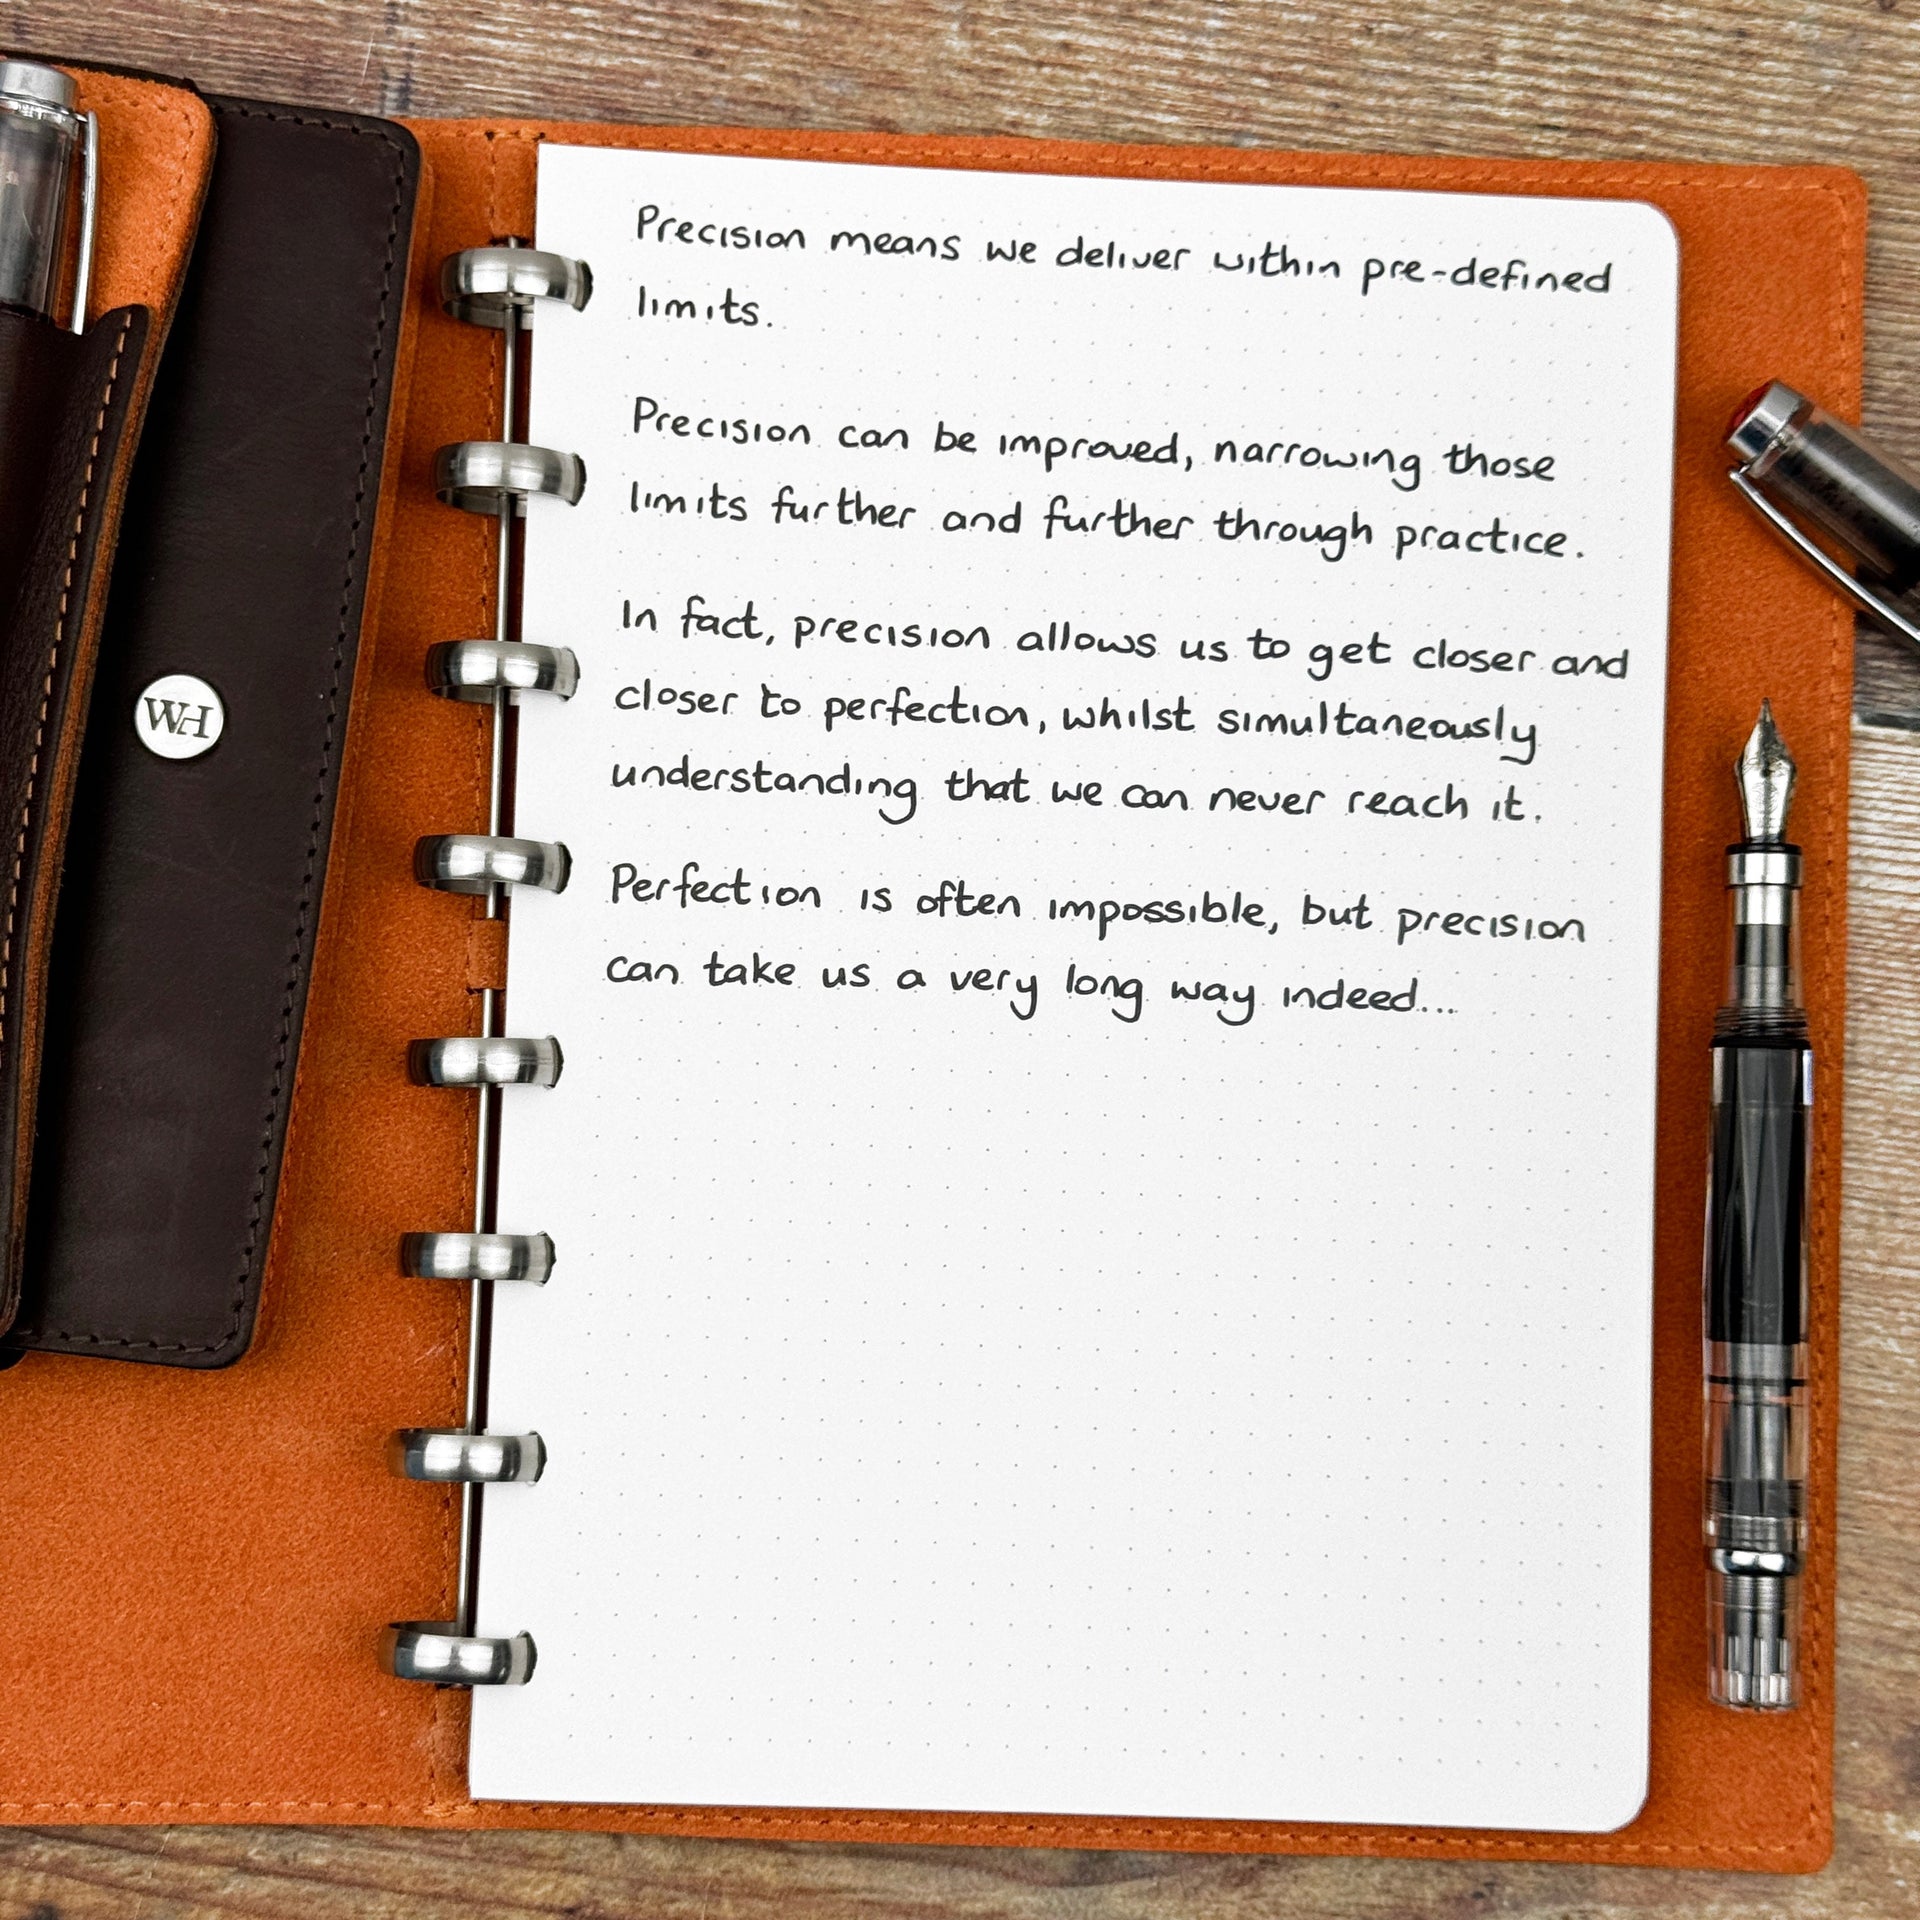 WH
Precision means we deliver within pre-defined
limits.
Precision can be improved, narrowing those
limits further and further through practice.
In fact, precision allows us to get closer and
closer to perfection, whilst simultaneously
understanding that we can never reach it.
Perfection is often impossible, but precision
can take us a very long way indeed...